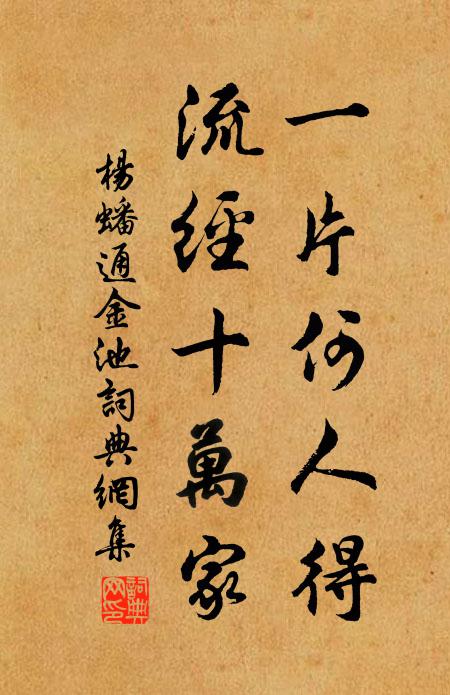 一片何人得
流經十萬家
楊蟠通金池詞典網集
詞典網印